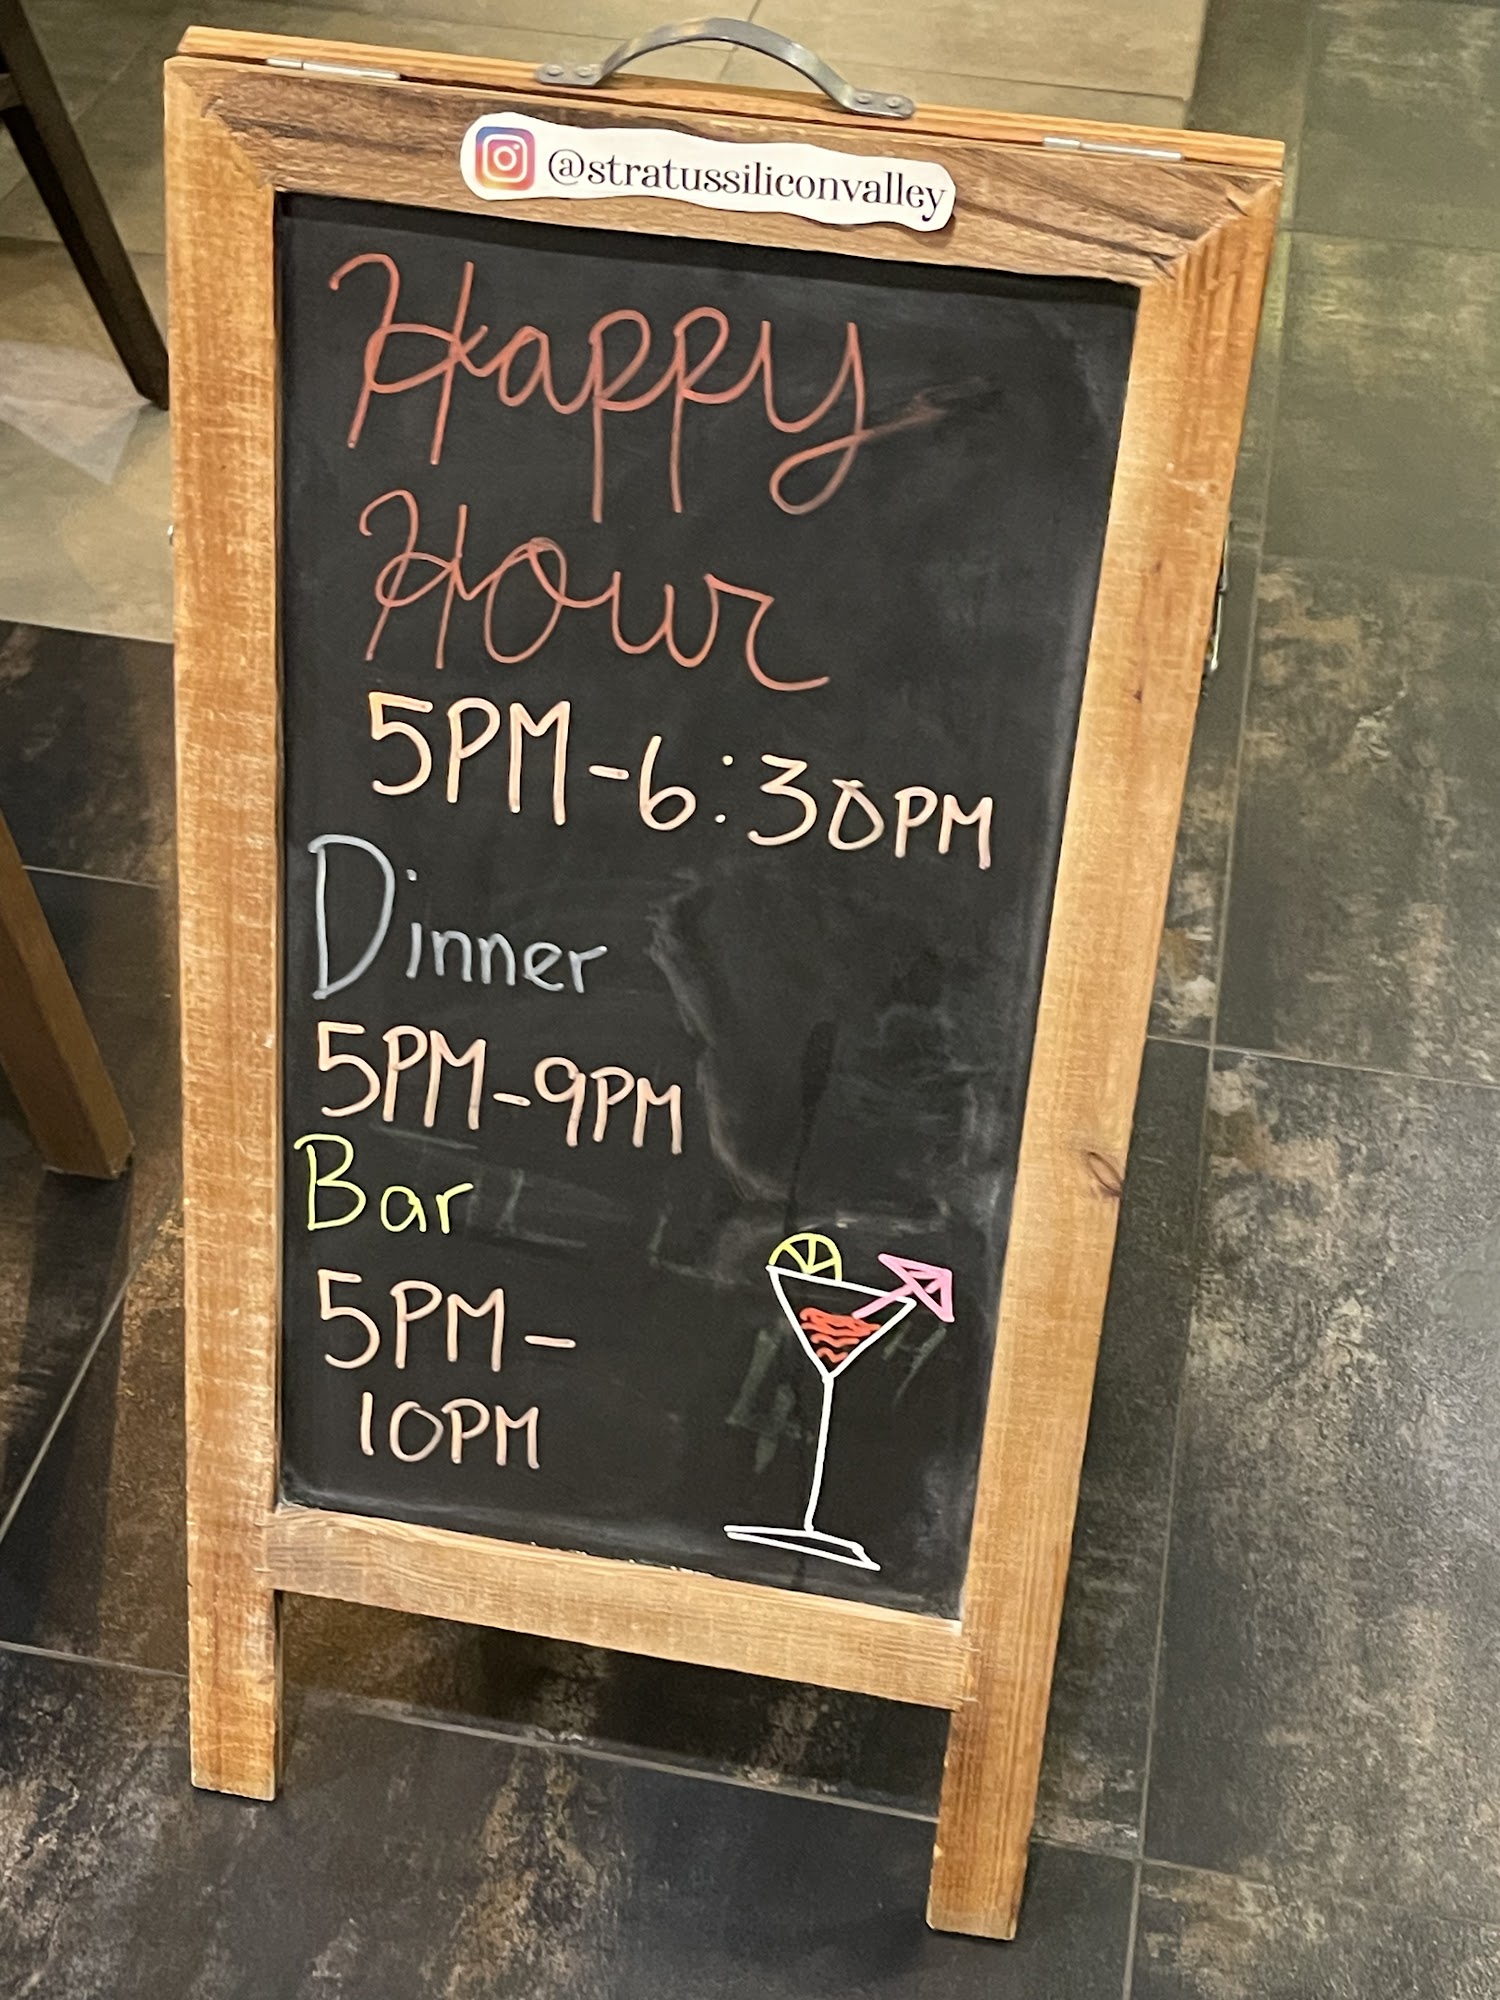 @stratussiliconvalley
Happy
Hour
5PM-6:30PM
Dinner
5PM-9PM
Bar
5PM-
10PM